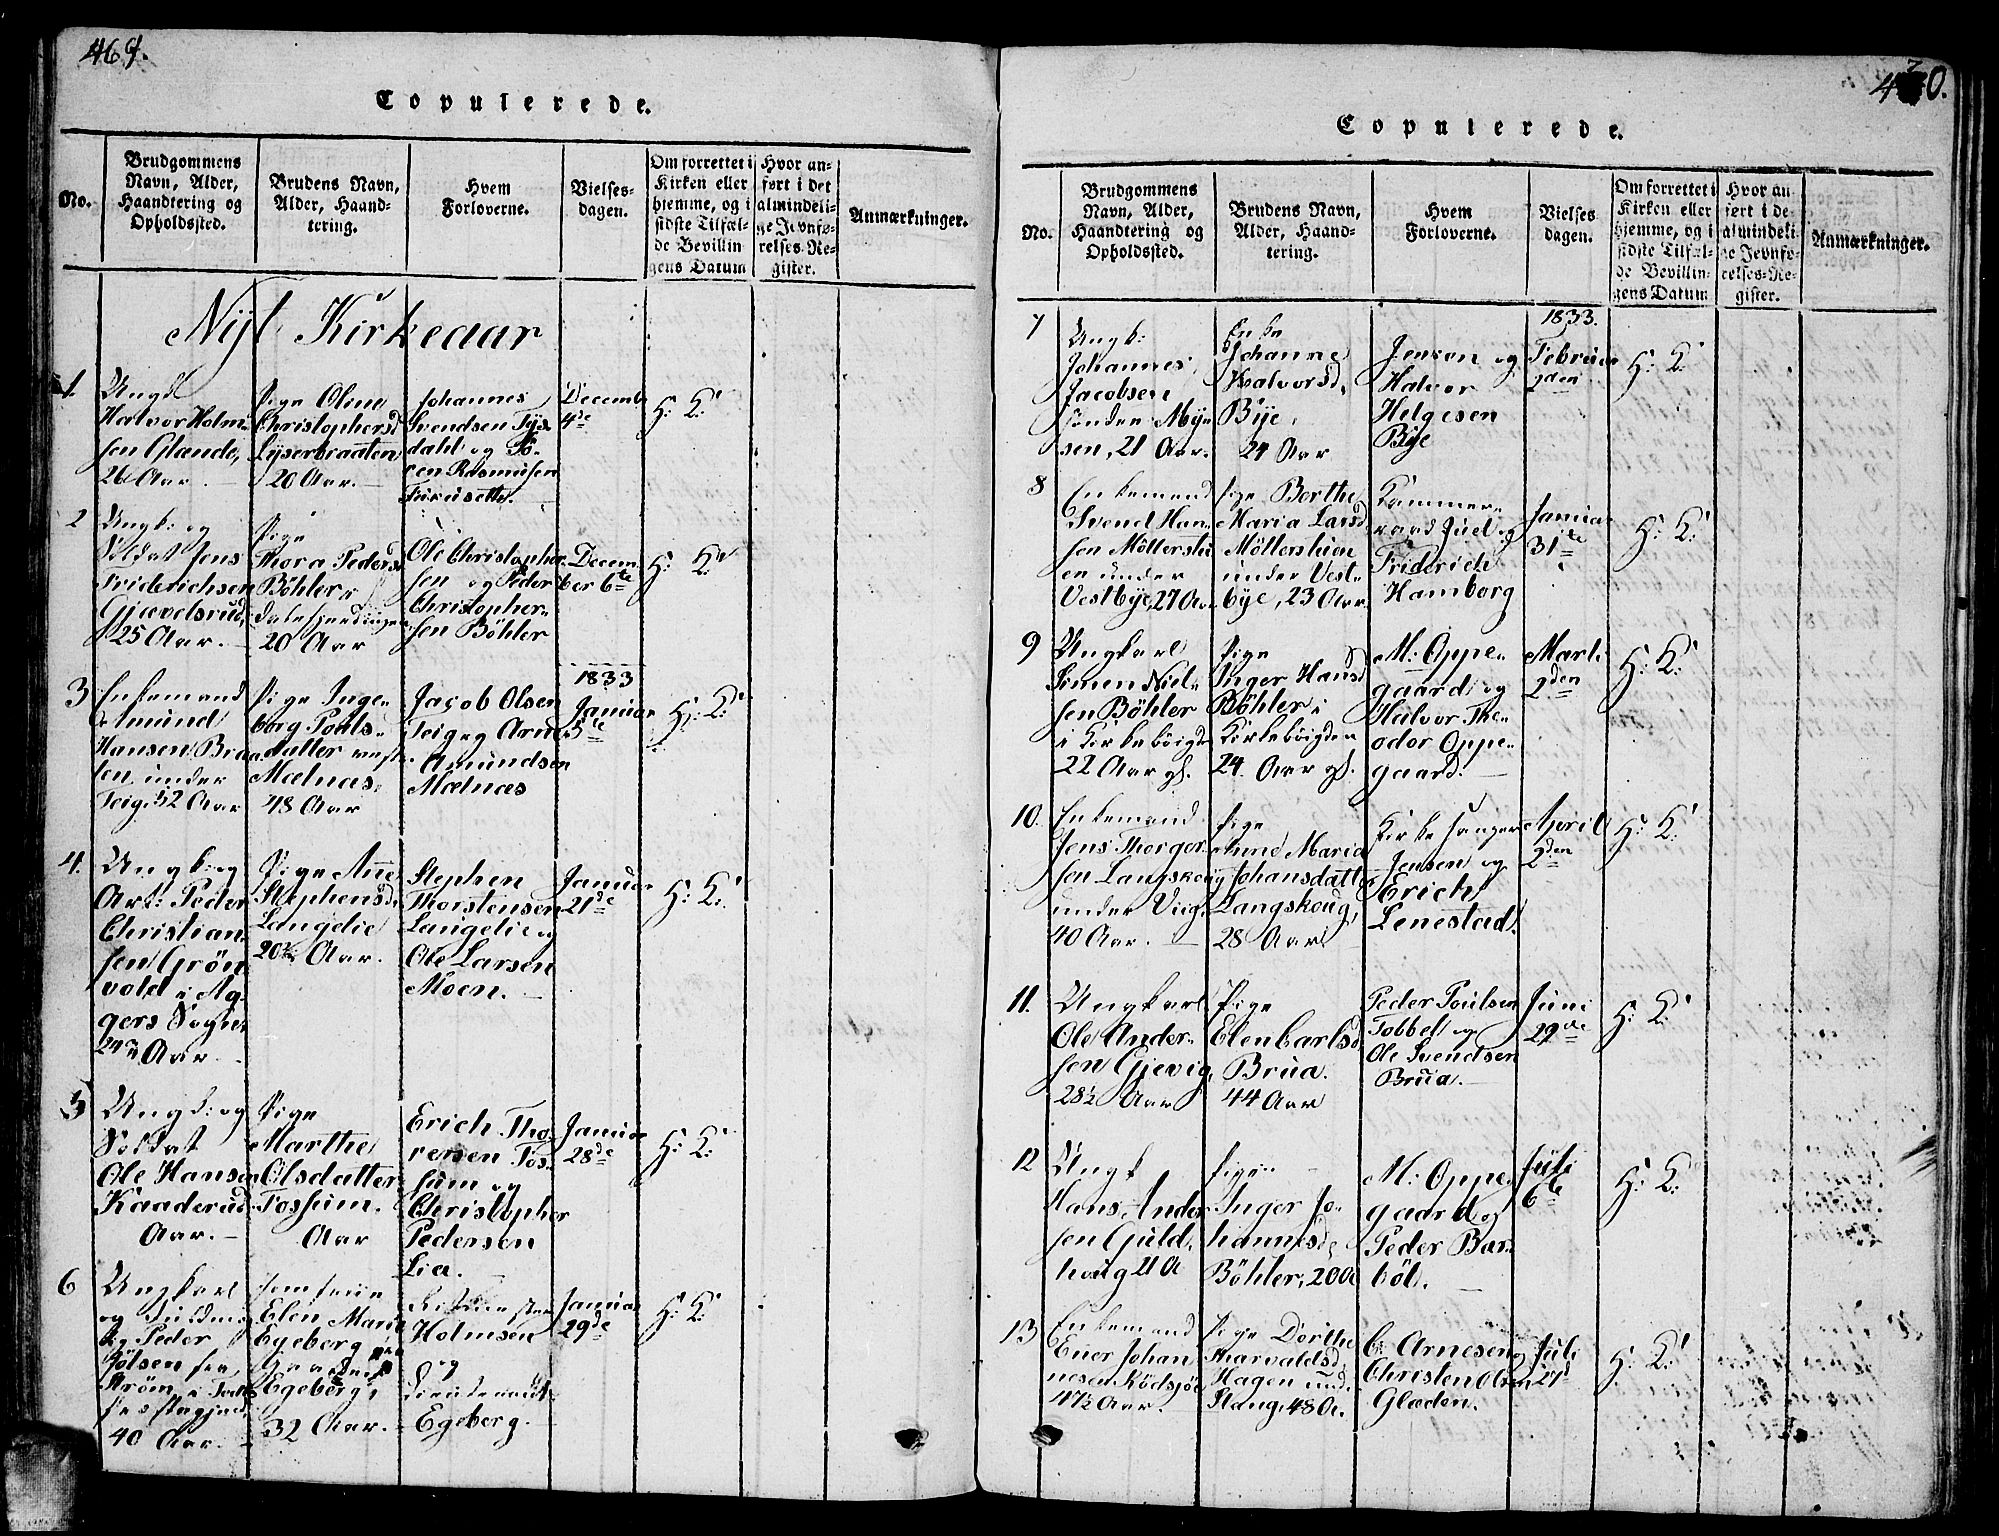 469.
Copulerede.
No.
Brudgommens
Navn, Alder,
Haandtering og
Opholdssted.
Brudens Navn,
Alder, Haand-
tering.
Hvem
Forloverne.
Vielses-
dagen.
Om forrettet i
Kirken eller
hjemme, og i
sidste Tilfæl-
de Bevillin-
gens Datum
Hvor an-
ført i det
almindeli-
ge Jevnfø-
relses-Re-
gister.
Anmærkninger.
Nyt Kirkeaar
1.
Ungk
Halvor Holm-
sen Glende,
26 Aar.
Pige Oline
Christophersd
Lyserbraaten
20 Aar.
Johannes
Svendsen Tys-
dahl og
Rasmusen
December
4de
H: K:
2
Ungk: og
Soldat Jens
Friderichsen
Gjævelsrud,
25 Aar.
Pige
Thora Pedersd
Böhler i
20 Aar
Ole Christopher-
sen og Peder
Christopher-
sen Böhler
Decem-
ber 6te
H: K:
3
Enkemand
Amund
Hansen Braa-
ten under
Teig, 52 Aar
Pige Inge-
borg Pouls-
datter
Mælnas,
48 Aar
Jacob Olsen
Teig og Arne
Amundsen
Mælnæs
1833
Januar
5te
H: K:
4.
Ungk: og
Art: Peder
Christian-
sen Grön-
vold i Ag-
gers Sogn,
Aar
Pige Anne
Stephensd.
Langelie
20½ Aar.
Stephen
Thorstensen
Langelie og
Ole Larsen
Moen.
Januar
21de
H: K:
5
Ungk: og
Soldat
Ole Hansen
Kaaderud
Aar.
Pige
Marthe
Olsdatter
Fossum.
Aar
Erich Tho-
resen Fos-
sum og
Christopher
Pedersen
Lia.
Januar
28de
H: K:
6
Ungkarl
og
Peder
Jölsen fra
Ström i
40 Aar.
Jomfrue
Elen Marie
Egeberg
Egeberg,
32 Aar.
Holmsen
og
Egeberg.
Januar
29de
H: K:
470.
Copulerede.
No.
Brudgommens
Navn, Alder,
Haandtering og
Opholdssted.
Brudens Navn,
Alder, Haand-
tering.
Hvem
Forloverne.
Vielses
dagen.
Om forrettet i
Kirken eller
hjemme, og i
sidste Tilfæl-
de Bevillin-
gens Datum
Hvor an-
ført i de-
almindeli-
ge Jevnfø-
relses-Re-
gister.
Anmærkninger.
7
Ungk:
Johannes
Jacobsen
Sönder My-
sen, 21 Aar.
Enke
Johanne
Halvorsd,
Bye,
24 Aar
Jensen og
Halvor
Helgesen
Bye
1833.
Februar
2den
H: K:
8
Enkemand
Svend Han-
sen Möllerstu-
en under
Vestbye, 27 Aar
Pige Berthe
Maria Larsd
Möllerstuen
under Vest-
bye, 23 Aar.
Kammer-
raad Juel og
Friderich
Hamborg
Januar
31te
H: K:
9
Ungkarl
Simen Niel-
sen Böhler
i Kirkeböigde
22 Aar gl.
Pige
Inger Hansd
Böhler i
Kirkeböigden
24 Aar gl.
M: Oppe-
gaard og
Halvor The-
odor Oppe-
gaard.
Marti
2den
H: K:
10.
Enkemand
Jens Thorger-
sen Langskoug
under
40 Aar.
Pige
Anne Maria
Johansdatter
Langskoug,
28 Aar
Kirkesanger
Jensen og
Erich
Lenestad.
April
2den
H: K:
11.
Ungkarl
Ole Ander-
sen Gjevig,
28½ Aar
Pige
Elen Carlsd
Brua.
44 Aar
Peder Poulsen
Tobbel og
Ole Svendsen
Brua.
Juni
29de
H: K:
12
Ungk
Hans Ander
sen Guld-
houg 21 A
Pige
Inger Jo-
hannesd,
Böhler, 20 A
M: Oppe-
gaard og
Peder Bar-
böl.
Juli
6te
H: K:
13
Enkemand
Ener Johan
nesen Rödsjöe
47½ Aar.
Pige Dorthe
Harvaldsd,
Hagen und.
Haug, 48 A.
C. Arnesen og
Christen Olsen
Glæden.
Juli
27
H: K: